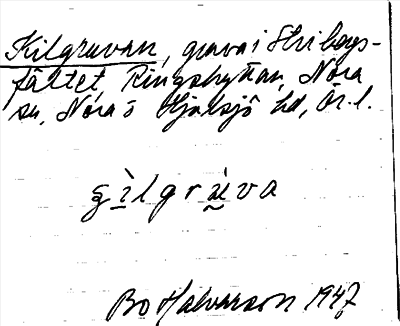 Kilgruvan, gruva i Stribergs-
fältet, Ringshyttan, Nora
sn, Nora o Hjulsjö bd, Ör. l.
g i l g r u v a
Bo Halvarson 1947